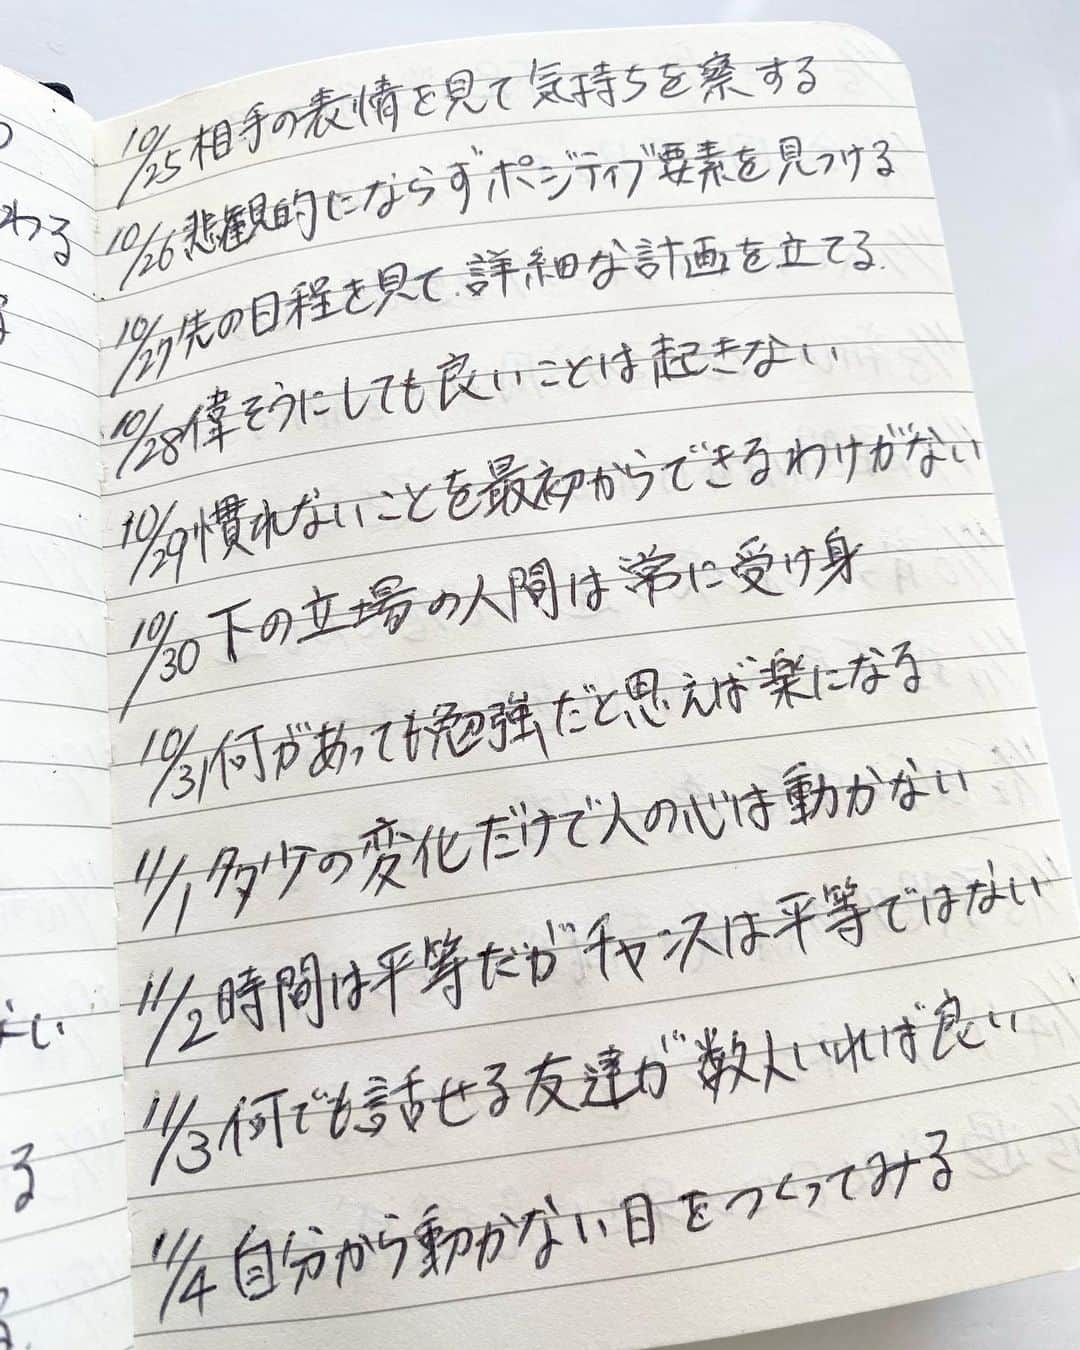 10/25 相手の表情を見て気持ちを察する
10/26 悲観的にならずポジティブ要素を見つける
10/27 先の日程を見て、詳細な計画を立てる.
10/28 偉そうにしても良いことは起きない
10/29 慣れないことを最初からできるわけがない
10/30 下の立場の人間は常に受け身
10/31 何があっても勉強だと思えば楽になる
11/1 多少の変化だけで人の心は動かない
11/2 時間は平等だがチャンスは平等ではない
11/3 何でも話せる友達が数人いれば良い
11/4 自分から動かない日をつくってみる